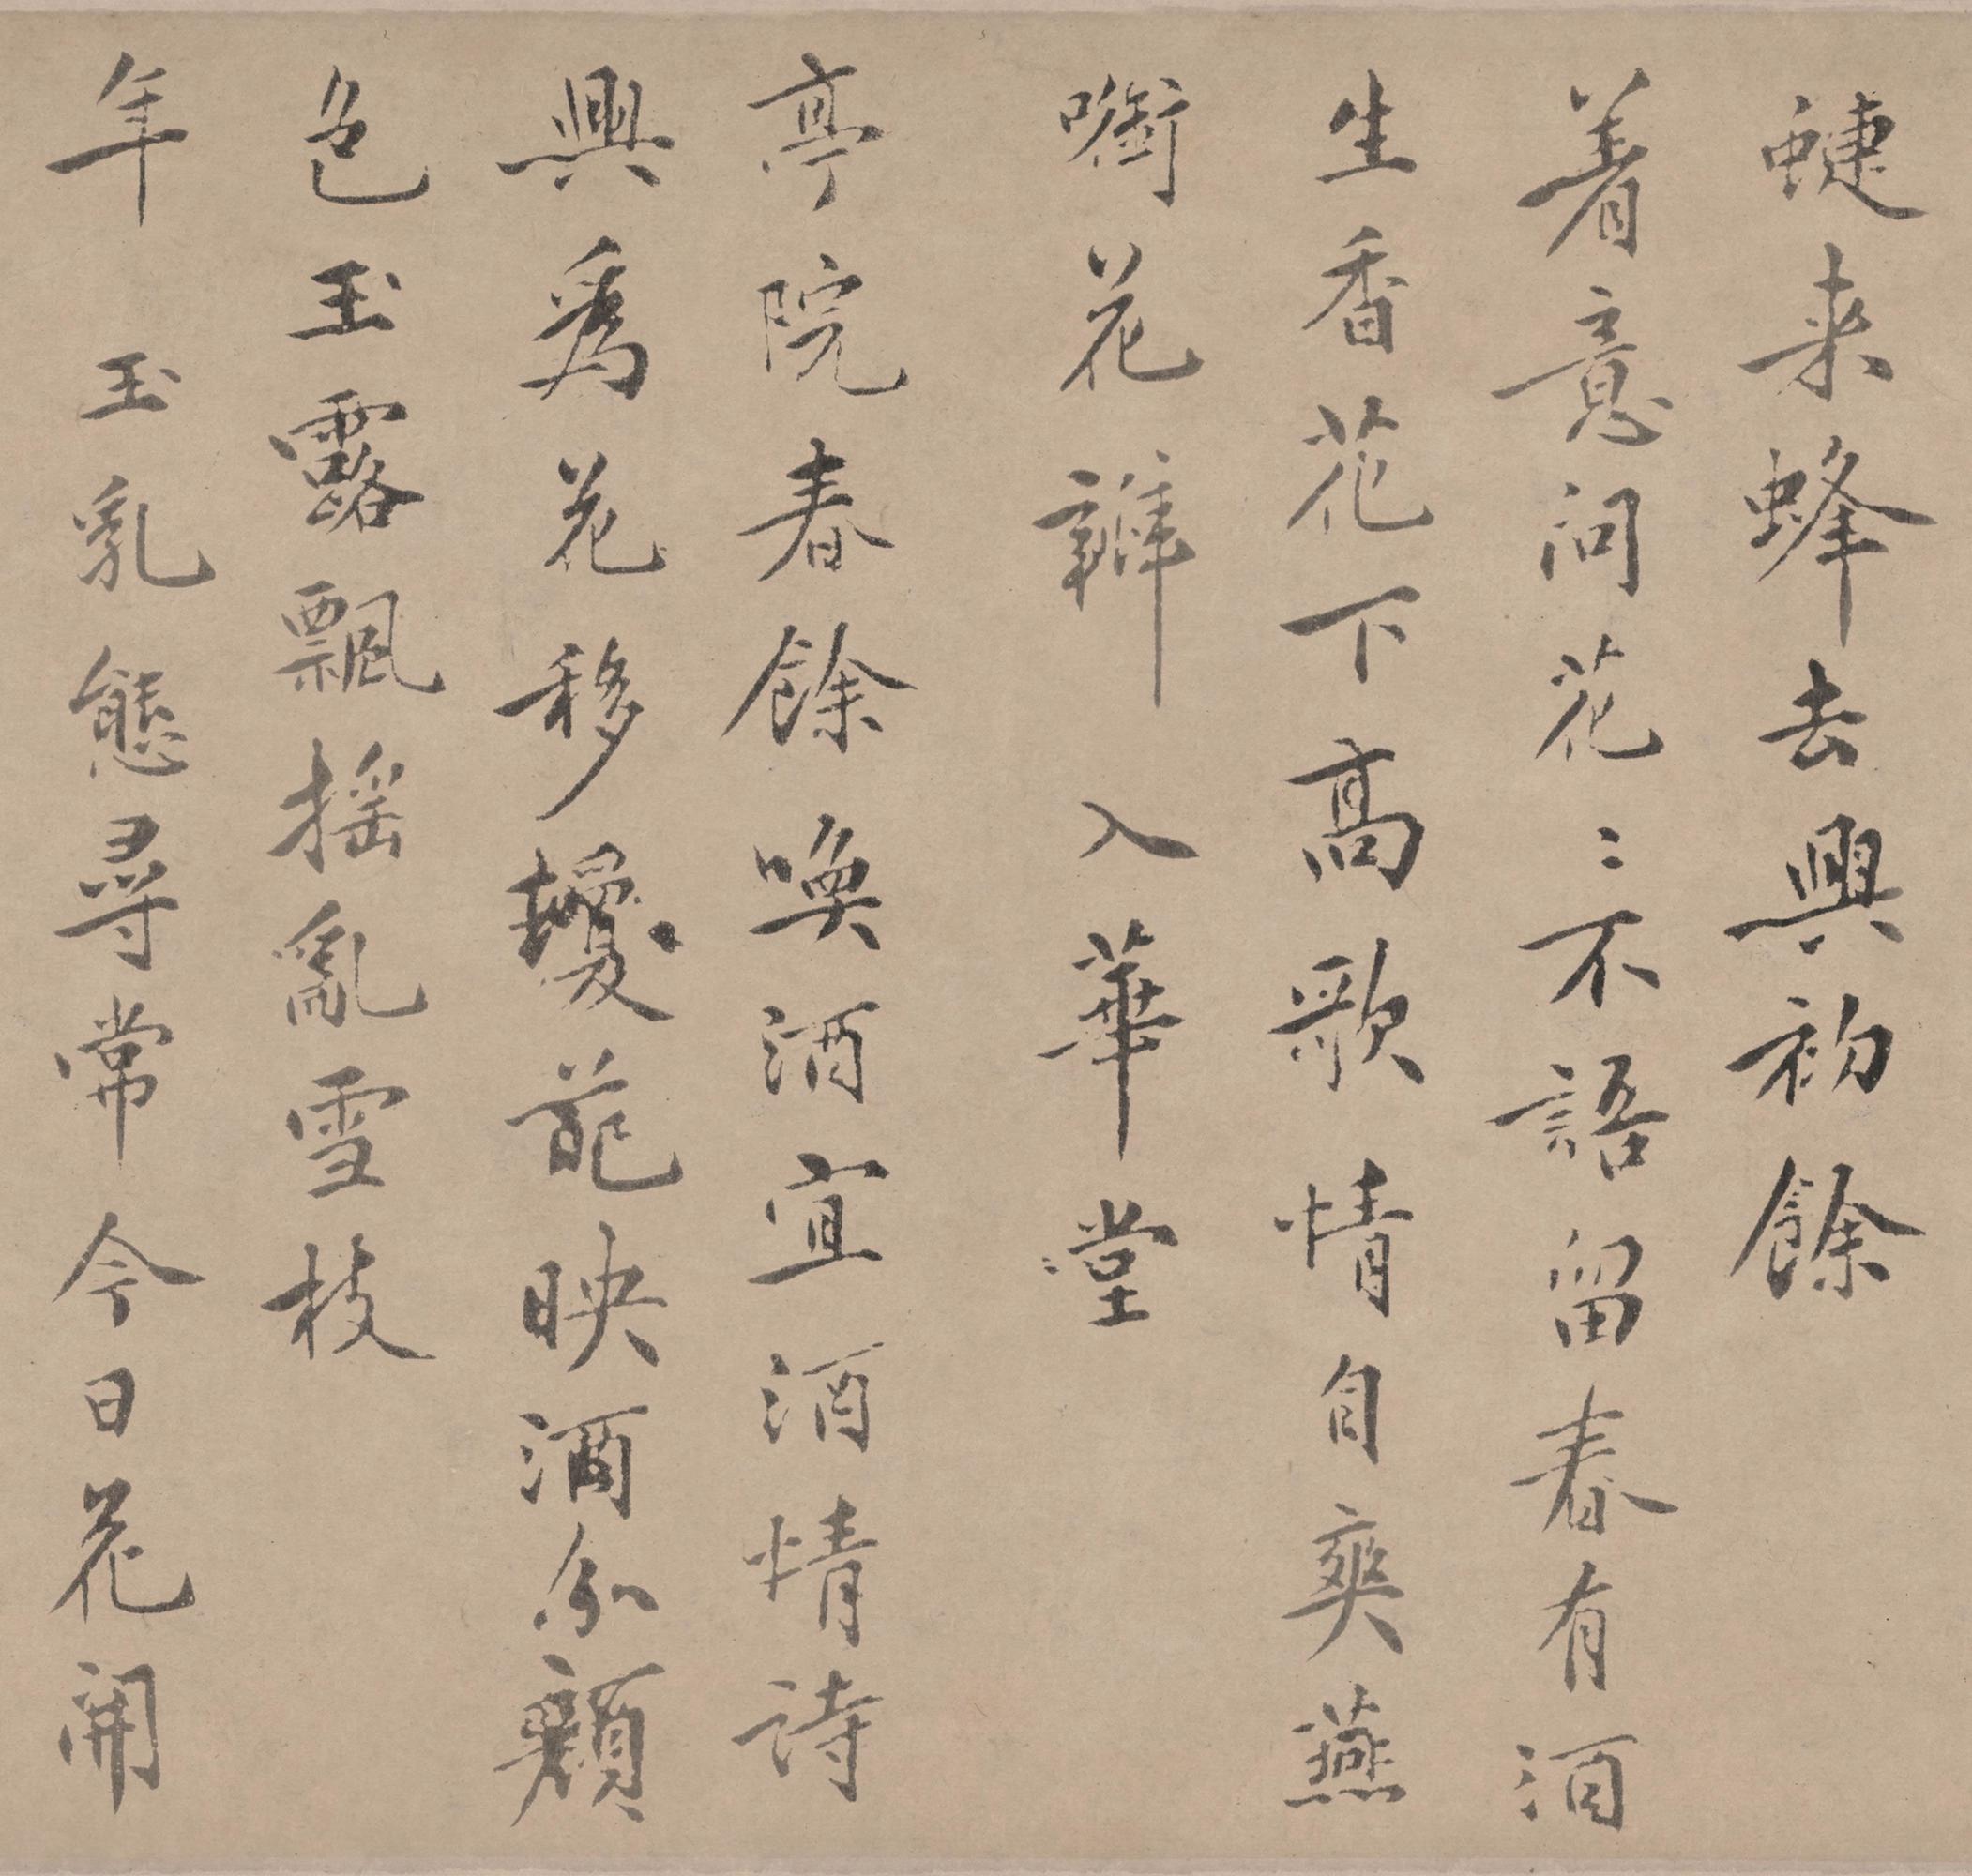 蜨来蜂去興初餘
着意问花〻不語留春有酒
生香花下高歌情自爽燕
啣花瓣入華堂
亭院春餘喚酒宜酒情詩
興爲花移擾花映酒分顏
色玉露飄搖亂雪枝
年玉乳態尋常今日花開